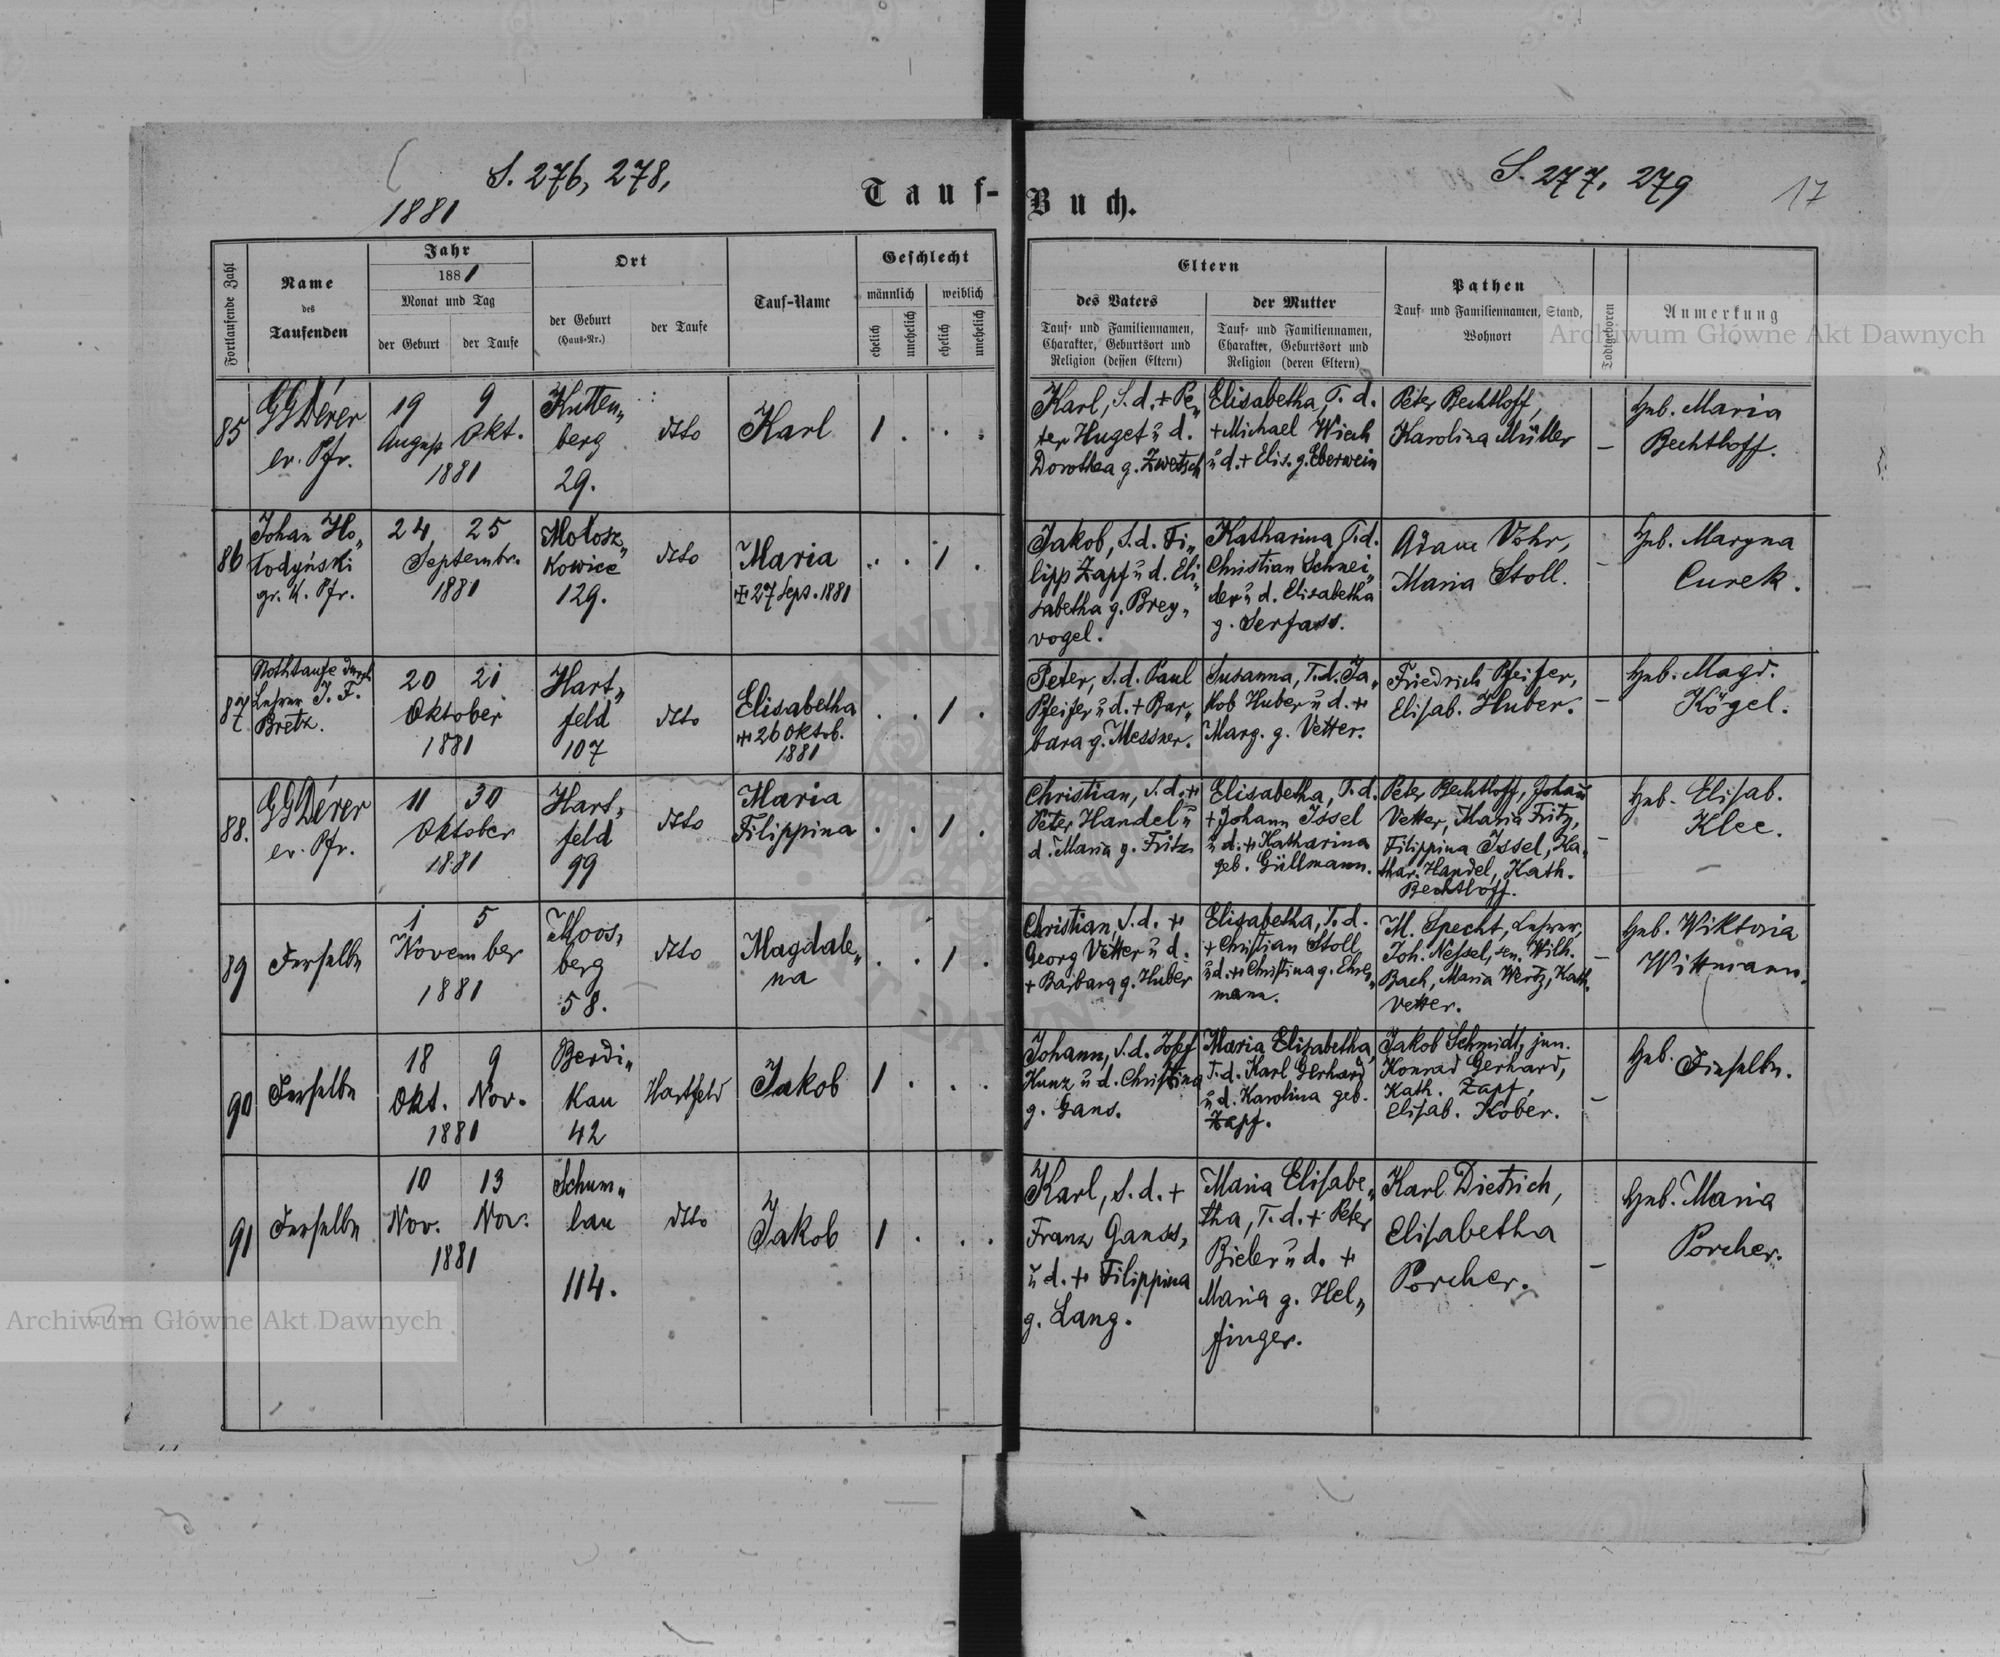 S. 276, 278,
1881
Tauf-
Buch.
S. 277, 279
17
Fortlaufende Zahl
Name
des
Taufenden
Jahr
1881
Monat und Tag
der Geburt
der Taufe
Ort
der Geburt
(Haus-Nr.)
der Taufe
Tauf-Name
Geschlecht
männlich
weiblich
ehelich
unehelich
ehelich
unehelich
Eltern
des Vaters
Tauf- und Familiennamen,
Charakter, Geburtsort und
Religion (dessen Eltern)
der Mutter
Tauf- und Familiennamen,
Charakter, Geburtsort und
Religion (deren Eltern)
Pathen
Tauf- und Familiennamen, Stand,
Wohnort
Todtgeboren
Anmerkung
85
GGDérer
ev. Pfr.
19 9
August Okt.
1881
Kutten„
berg
29.
dtto
Karl
1 . . .
Karl, S. d. + Pe„
ter Huget u d.
Dorothea g. Zwetsch
Elisabetha, T. d.
+ Michael Wiech
u d. + Elis. g. Eberwein
Peter Bechtloff,
Karolina Müller
–
Heb. Maria
Bechtloff.
86
Johan Ho„
łodyński
gr. k. Pfr.
24 25
Septembr.
1881
Mołosz„
kowice
129.
dtto
Maria
+ 27 Sept. 1881
. . 1 .
Jakob, S. d. Fi„
lipp Zapf u d. Eli„
sabetha g. Brey„
vogel.
Katharina T. d.
Christian Schnei„
der u d. Elisabetha
g. Serfass.
Adam Vohr,
Maria Stoll.
–
Heb. Maryna
Curek.
87
Nothtaufe durch
Lehrer J. F.
Bretz.
20 21
Oktober
1881
Hart„
feld
107
dtto
Elisabetha
+ 26 Oktob.
1881
. . 1 .
Peter, S. d. Paul
Pfeifer u d. + Bar„
bara g. Messner.
Susanna, T. d. Ja„
kob Huber u d. +
Marg. g. Vetter.
Friedrich Pfeifer,
Elisab. Huber.
–
Heb. Magd.
Kögel.
88.
GGDérer
ev. Pfr.
11 30
Oktober
1881
Hart„
feld
99
dtto
Maria
Filippina
. . 1 .
Christian, S. d. +
Peter Handel u
d. Maria g. Fritz
Elisabetha, T. d.
+ Johann Issel
u d. + Katharina
geb. Güllmann.
Peter Bechtloff, Johann
Vetter, Maria Fritz,
Filippina Issel, Ka„
thar. Handel, Kath.
Bechtloff.
–
Heb. Elisab.
Klee.
89
Derselbe
1 5
November
1881
Moos„
berg
58.
dtto
Magdale„
na
. . 1 .
Christian, S. d. +
Georg Vetter u d.
+ Barbara g. Huber
Elisabetha, T. d.
+ Christian Stoll
u d. + Christina g. Ehr„
mann.
M. Specht, Lehrer,
Joh. Nessel, sen. Wilh.
Bach, Maria Wertz, Kath.
Vetter.
–
Heb. Wiktoria
Wittmann.
90
Derselbe
18 9
Okt. Nov.
1881
Berdi„
kau
42
Hartfeld
Jakob
1 . . .
Johann, S. d. Josef
Kunz u d. Christina
g. Gans.
Maria Elisabetha,
T. d. Karl Gerhard
u d. Karolina geb.
Zapf.
Jakob Schmidt, jun.
Konrad Gerhard,
Kath. Zapf,
Elisab. Kober.
–
Heb. Dieselbe.
91
Derselbe
10 13
Nov. Nov.
1881
Schum„
lau
114.
dtto
Jakob
1 . . .
Karl, S. d. +
Franz Ganss,
u d. + Filippina
g. Lang.
Maria Elisabe„
tha, T. d. + Peter
Bieler u d. +
Maria g. Hel„
finger.
Karl Dietrich,
Elisabetha
Porcher.
–
Heb. Maria
Porcher.
Archiwum Główne Akt Dawnych
Archiwum Główne Akt Dawnych